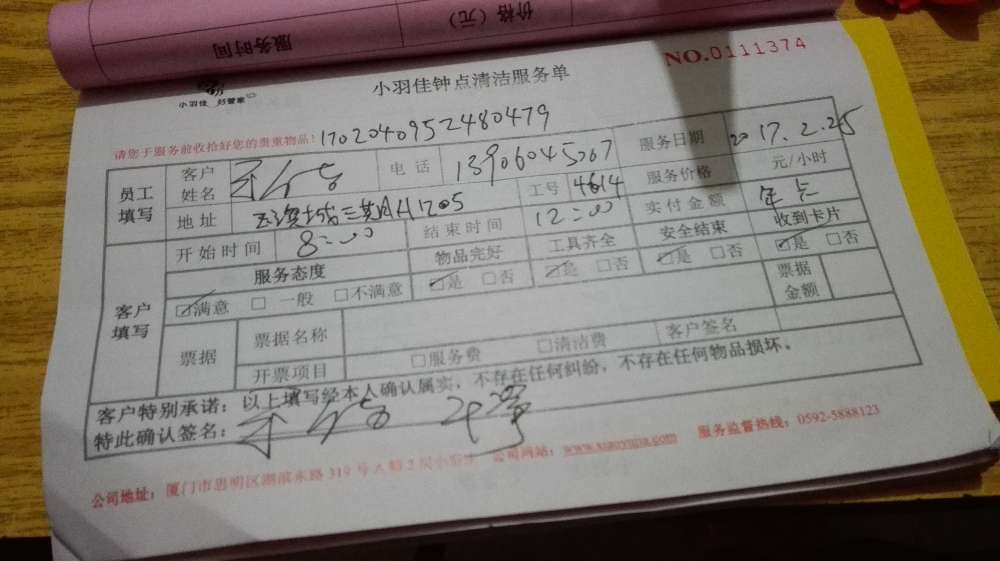 服务时间 价格（元）
NO.0111374
小羽佳 好管家
小羽佳钟点清洁服务单
请您于服务前收拾好您的贵重物品！1702040952480479
员工填写 客户姓名 电话 13906045207 服务日期 2017.2.25
地址 H1205 工号 4614 服务价格 元/小时
开始时间 8:00 结束时间 12:00 实付金额 年卡
客户填写 服务态度 物品完好 工具齐全 安全结束 收到卡片
☑满意 □ 一般 □不满意 ☑是 □否 ☑是 □否 ☑是 □否 ☑是 □否
票据 票据名称 票据金额
开票项目 □服务费 □清洁费 客户签名
客户特别承诺：以上填写经本人确认属实，不存在任何纠纷，不存在任何物品损坏。
特此确认签名：
公司地址：厦门市思明区湖滨东路319号A幢2层 公司网站： 服务监督热线：0592-5888123